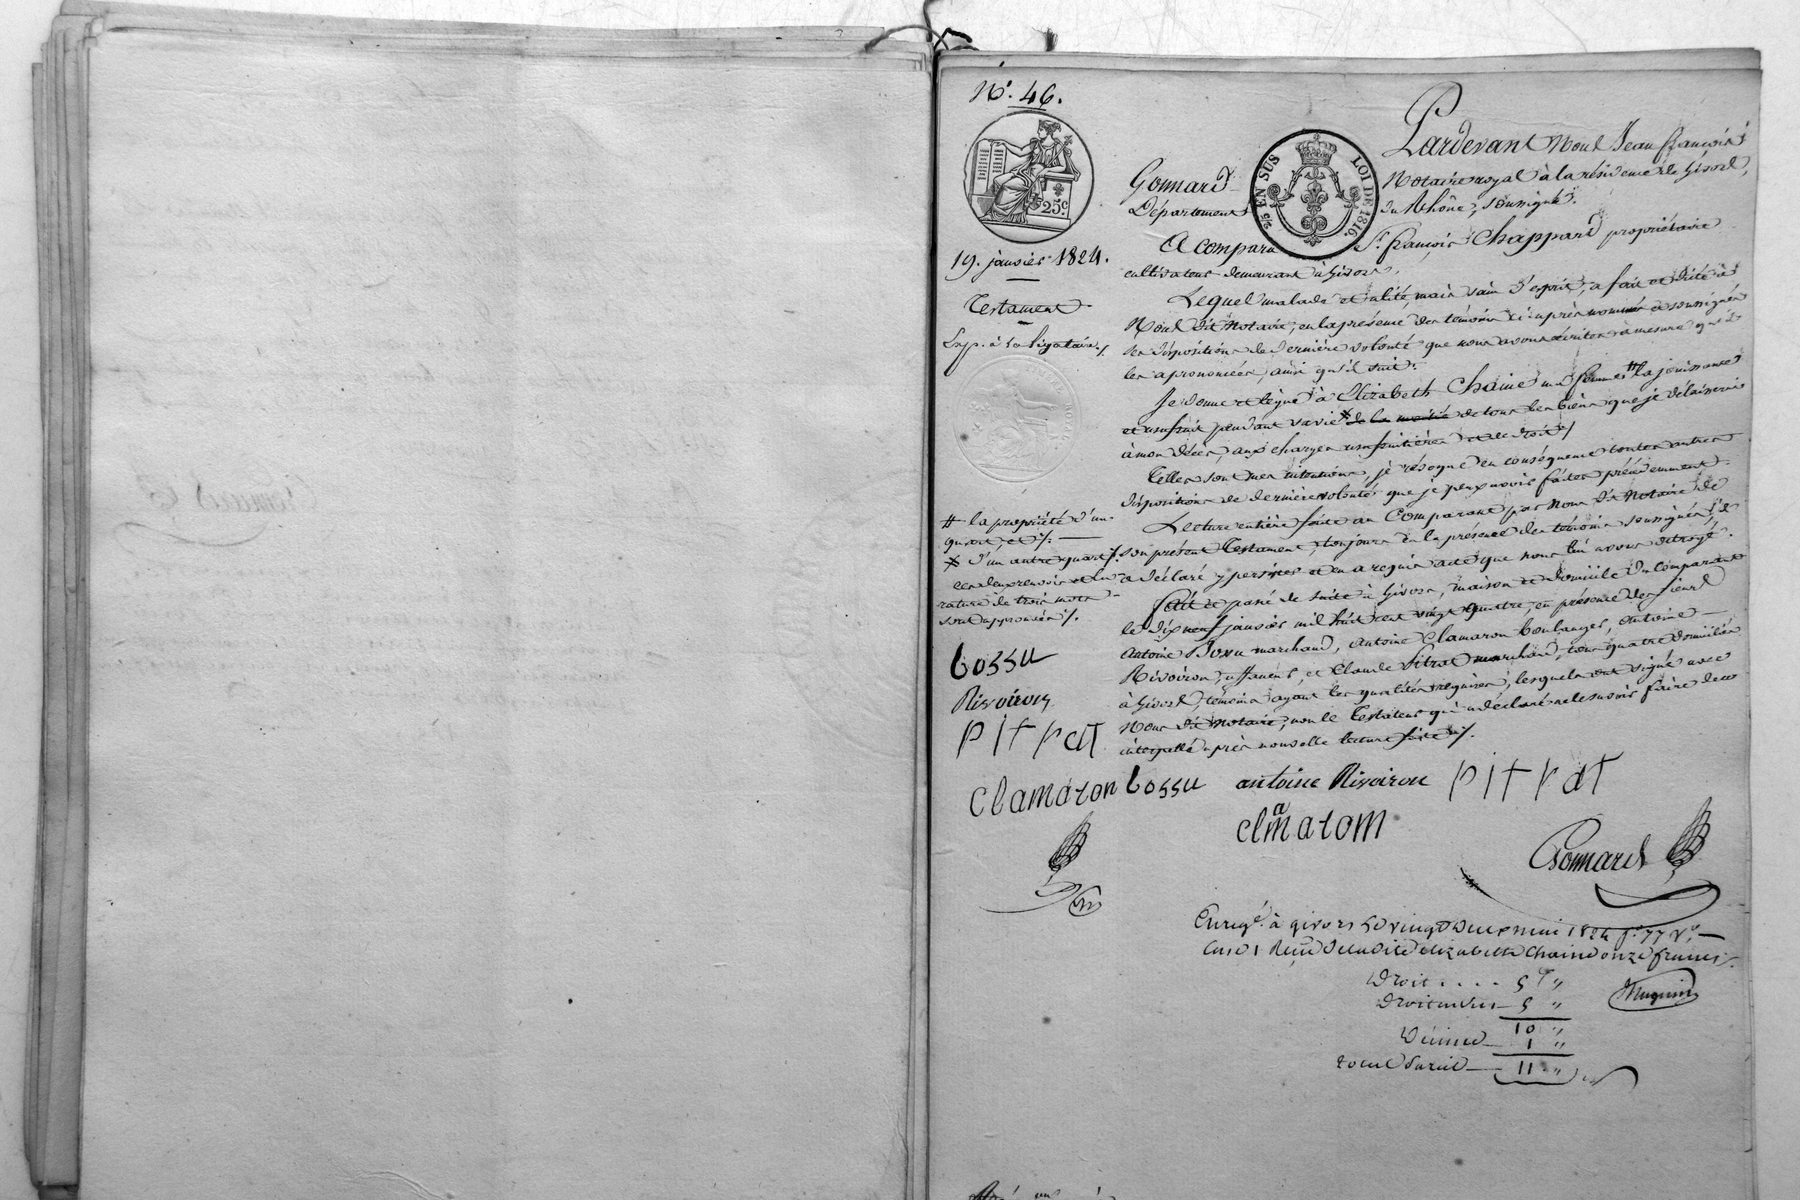 N.º 46.
25 c
19. janvier 1824.
Testament
Exp. à la légataire ./.
EN SUS
LOI DE 1816.
Pardevant Nous Jean françois
Gonnard Notaire royal à la résidence de Givors,
Département du Rhône, soussigné.
A comparu S.r françois Chappard propriétaire
cultivateur demeurant à Givors,
Lequel malade et alité, mais sain d'esprit, a fait et dicté à
Nous dit Notaire, en la présence des témoins ci-après nommés et soussignés
ses dispositions de dernière volonté que nous avons écrites à mesure qu'il
les a prononcées, ainsi qu'il suit:
Je donne et lègue à Elizabeth Chaine ma femme # la jouissance
et usufruit pendant sa vie * de la moitié de tous les biens que je délaisserai
à mon décès, aux charges usufruitières et de droit ./.
Telles sont mes intentions, je révoque en conséquence toutes autres
dispositions de dernière volonté que je peux avoir faites précédemment.
Lecture entière faite au Comparant par Nous dit Notaire de
son présent Testament, toujours en la présence des témoins soussignés, il
a déclaré y persister et en a requis acte que nous lui avons octroyé.
fait et passé de suite à Givors, maison et domicile du comparant
le dix neuf janvier mil huit cent vingt quatre, en présence des sieurs
Antoine Bossu marchand, Antoine Clamaron boulanger, Antoine
Rivoiron, et Claude Pitrat marchand, tous quatre domiciliés
à Givors, témoins ayant les qualités requises, lesquels ont signé avec
Nous dit Notaire, non le Testateur qui a déclaré ne le savoir faire de ce
interpellé après nouvelle lecture faite ./.
# la propriété d'un
quart, et ./.
* d'un autre quart ./.
ces deux renvois et la
rature de trois mots
sont approuvés ./.
bossu
Rivoiron
pitrat
Clamaron bossu antoine Rivoiron pitrat
clamaron
Gonnard
Enregé. à givors Le vingt deux mai 1824 f.º 77 V.º
Case 1 Reçu de ladite elizabeth Chaine onze francs
Droit .... 5 f "
Droit en sus 5 "
10 "
Décime 1 "
total Pareil 11 "